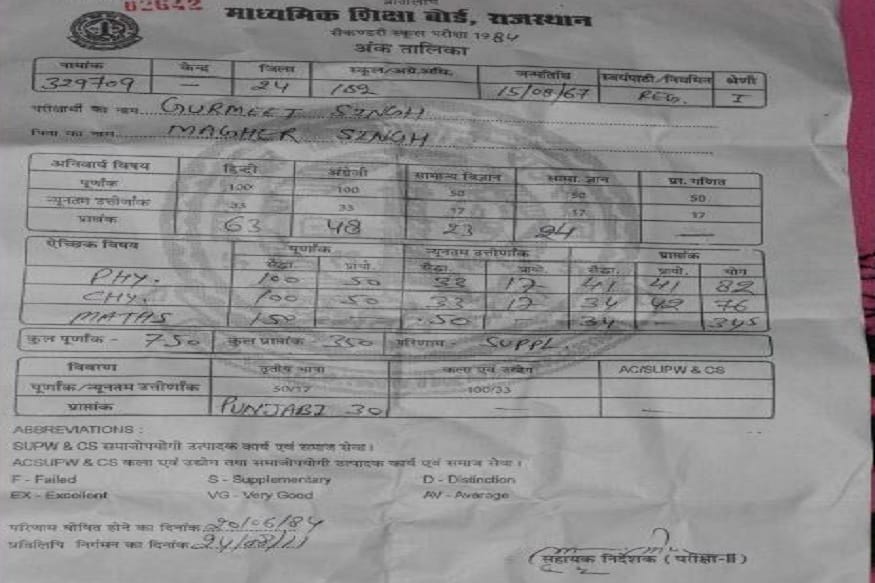 प्रतिलिपि
02642
माध्यमिक शिक्षा बोर्ड, राजस्थान
सैकण्डरी स्कूल परीक्षा 1984
अंक तालिका
नामांक केन्द्र जिला स्कूल/अग्रे.अधि. जन्मतिथि स्वयंपाठी/नियमित श्रेणी
329709 — 24 189 15/08/67 REG. I
परीक्षार्थी का नाम GURMEET SINGH
पिता का नाम MAGHER SINGH
अनिवार्य विषय हिन्दी अंग्रेजी सामान्य विज्ञान सामा. ज्ञान प्रा. गणित
पूर्णांक 100 100 50 50 50
न्यूनतम उत्तीर्णांक 33 33 17 17 17
प्राप्तांक 63 48 23 24 —
ऐच्छिक विषय पूर्णांक न्यूनतम उत्तीर्णांक प्राप्तांक
सैद्धा. प्रायो. सैद्धा. प्रायो. सैद्धा. प्रायो. योग
PHY. 100 50 33 17 41 41 82
CHY. 100 50 33 17 34 42 76
MATHS 150 — 50 34 — 345
कुल पूर्णांक - 750 कुल प्राप्तांक - 350 परिणाम - SUPPL.
विवरण तृतीय भाषा कला एवं उद्योग AC/SUPW & CS
पूर्णांक/न्यूनतम उत्तीर्णांक 50/17 100/33
प्राप्तांक PUNJABI 30 — —
ABBREVIATIONS :
SUPW & CS समाजोपयोगी उत्पादक कार्य एवं समाज सेवा।
ACSUPW & CS कला एवं उद्योग तथा समाजोपयोगी उत्पादक कार्य एवं समाज सेवा।
F - Failed S - Supplementary D - Distinction
EX - Excellent VG - Very Good AV - Average
परिणाम घोषित होने का दिनांक 20/06/84
प्रतिलिपि निर्गमन का दिनांक 24/08/11
(सहायक निर्देशक (परीक्षा-II)